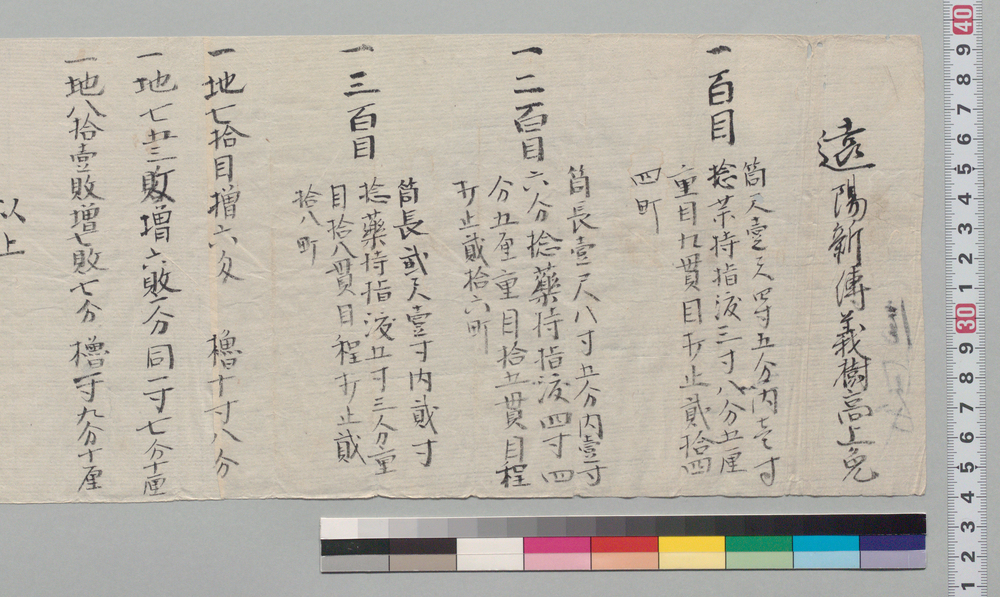 遠陽新傳義樹高上免
一百目
筒尺壹尺四寸五分内壱寸
捻芊持指渡三寸八分五厘
重目九貫目打止貳拾四
四町
一二百目
筒長壹尺八寸五分内壹寸
六分捻藥持指渡四寸四
分五厘重目拾五貫目程
打止貳拾六町
一三百目
筒長貳尺壹寸内貳寸
捻藥持指渡五寸三分重
目拾八貫目程打止貳
拾八町
一地七拾目増六匁 櫓十寸八分
一地七五三敗増六敗一分同一寸七分十厘
一地八拾壹敗増七敗七分櫓一寸九分十厘
以上